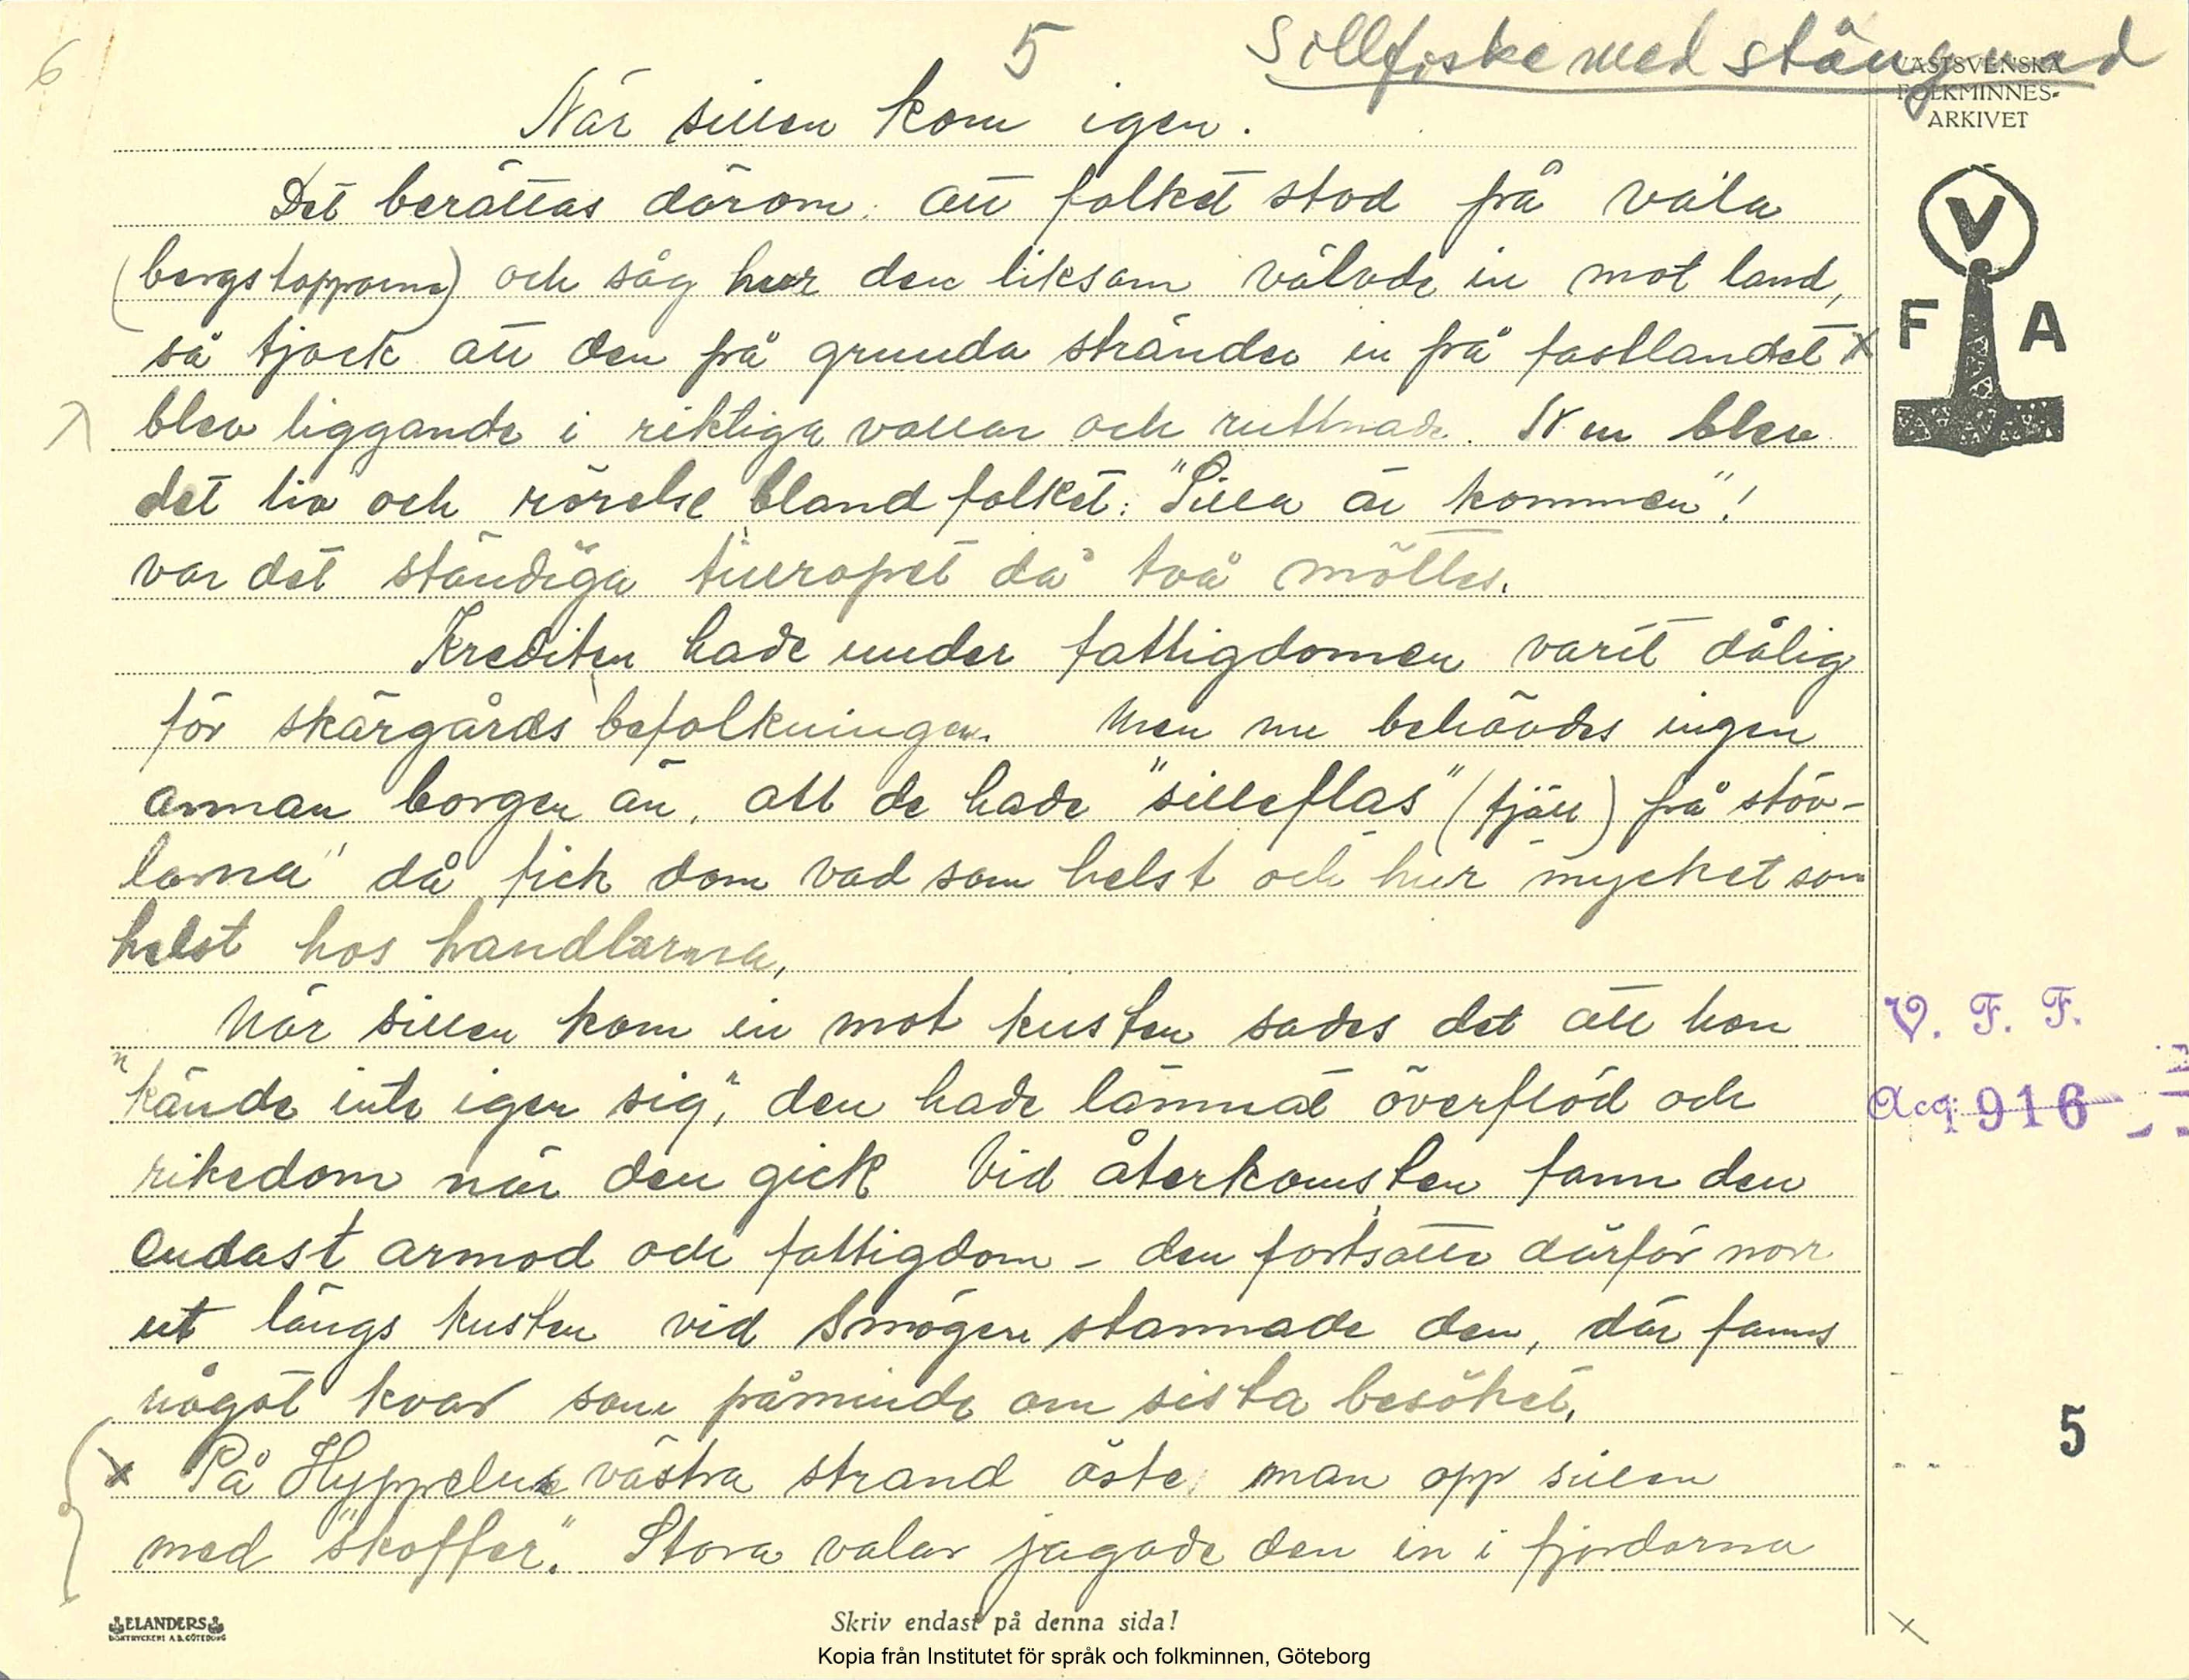 6
5
Sillfiske med stängvad
VÄSTSVENSKA
FOLKMINNES-
ARKIVET
När sillen kom igen.
Det berättas därom: att folket stod på våla
(bergstopparna) och såg hur den liksom välvde in mot land,
så tjock att den på grunda stränder in på fastlandet x
blev liggande i riktiga vallar och ruttnade. Nu blev
det liv och rörelse bland folket: "Silla är kommen"!
var det ständiga tillropet då två möttes.
Krediten hade under fattigdomen varit dålig
för skärgårdsbefolkningen. Men nu behövdes ingen
annan borgen än, att de hade "silleflas" (fjäll) på stöv-
larna" då fick dom vad som helst och hur mycket som
helst hos handlarna.
När sillen kom in mot kusten sades det att hon
"kände inte igen sig", den hade lämnat överflöd och
rikedom när den gick Vid återkomsten fann den
endast armod och fattigdom - den fortsatte därför norr
ut längs kusten vid Smögen stannade den, där fanns
något kvar som påminde om sista besöket.
x På Hyppelns västra strand öste man opp sillen
med "skoffer". Stora valar jagade den in i fjordarna
V
F A
V. F. F.
Acq. 916
5
ELANDERS
BOKTRYCKERI A.B. GÖTEBORG
Skriv endast på denna sida!
Kopia från Institutet för språk och folkminnen, Göteborg